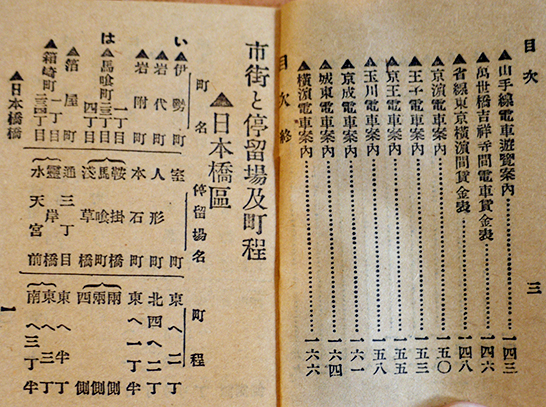 目次　三
▲山手線電車遊覽案內……一四三
▲萬世橋吉祥寺間電車賃金表……一四六
▲省線東京橫濱間賃金表……一四八
▲京濱電車案內……一五〇
▲王子電車案內……一五三
▲京王電車案內……一五五
▲玉川電車案內……一五八
▲京成電車案內……一六一
▲城東電車案內……一六四
▲橫濱電車案內……一六六
目次終
市街と停留場及町程
▲日本橋區
町名　停留場名　町程
い▲伊勢町　室町　東へ二丁
▲岩代町　人形町　北四へ二丁
▲岩附町　本石町　東へ一丁半
は▲馬喰町　一丁目　鞍掛橋　兩側
二三丁目　馬喰町　兩側
四丁目　淺草橋　四側
▲箔屋町　通三丁目　東へ半丁
▲箱崎町　一丁目　靈岸橋　東へ三丁
二三四丁目　水天宮前　南へ三丁半
▲日本橋橋
一